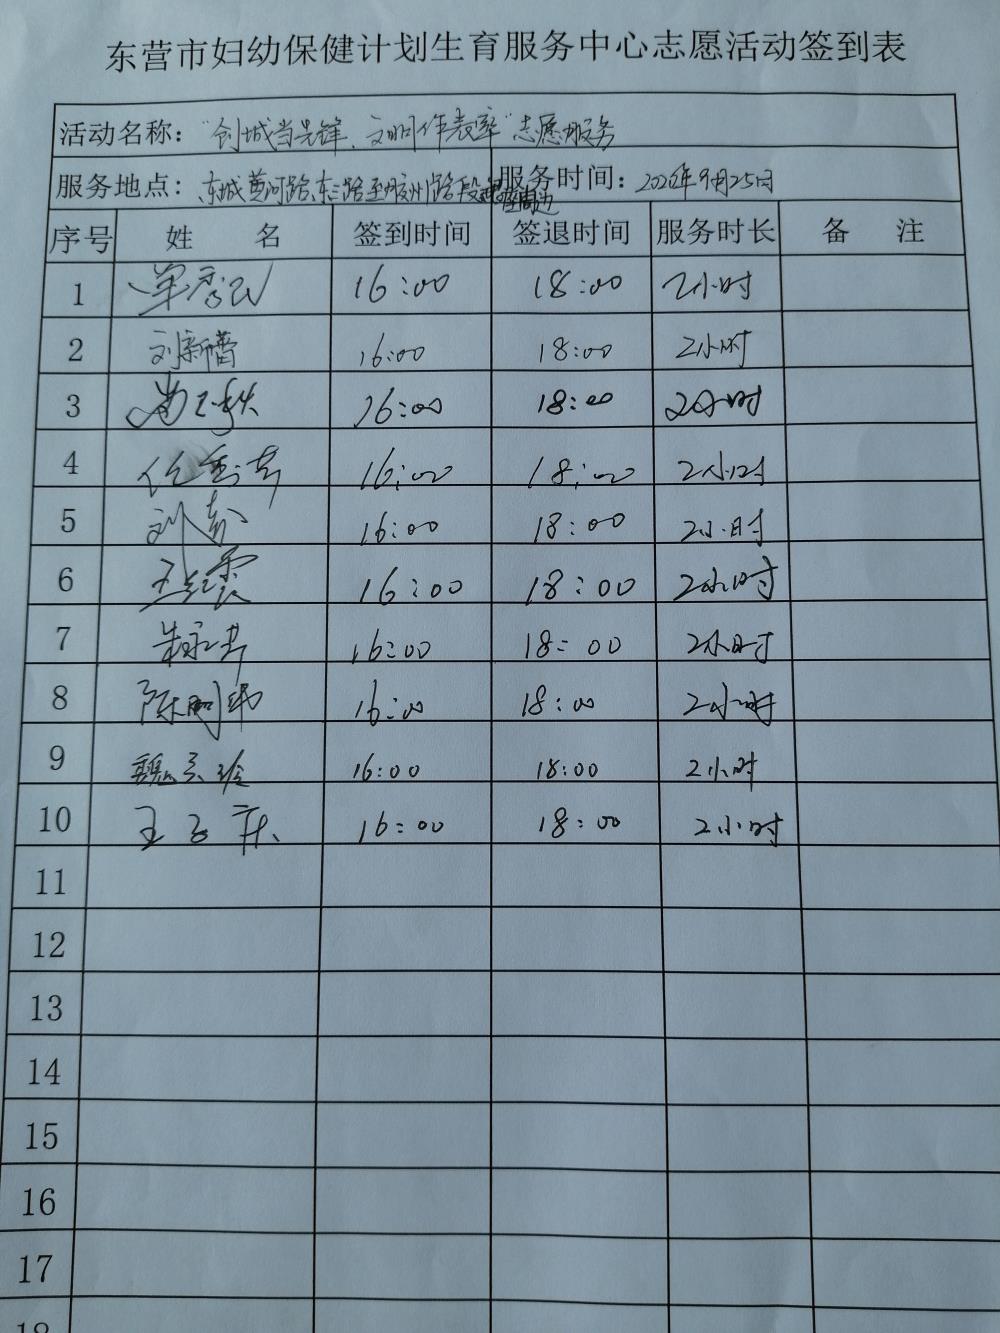 东营市妇幼保健计划生育服务中心志愿活动签到表
活动名称：“创城当先锋、文明作表率”志愿服务
服务地点：东城黄河路、东三路至胶州路段 周边 服务时间：2020年9月25日
序号 姓 名 签到时间 签退时间 服务时长 备 注
1 单秀民 16:00 18:00 2小时
2 刘新蕾 16:00 18:00 2小时
3 16:00 18:00 2小时
4 任秀 16:00 18:00 2小时
5 刘 16:00 18:00 2小时
6 王红霞 16:00 18:00 2小时
7 朱永 16:00 18:00 2小时
8 陈 16:00 18:00 2小时
9 魏 玲 16:00 18:00 2小时
10 王 16:00 18:00 2小时
11
12
13
14
15
16
17
18